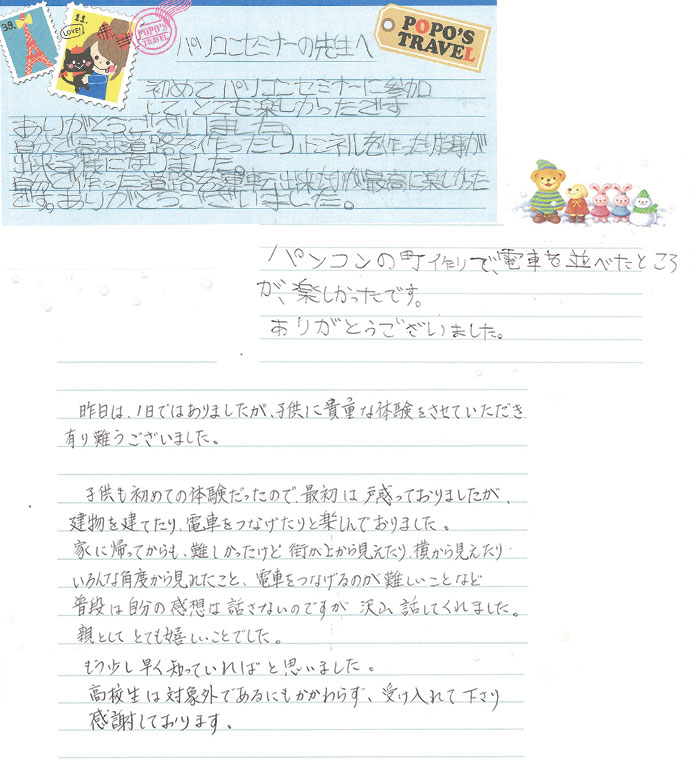 39.
11.
LOVE!
POPO'S
TRAVEL
POPO'S
TRAVEL
パソコンセミナーの先生へ
初めてパソコンセミナーに参加
して、とても楽しかったです
ありがとうございました。
自分で高速道路を作ったり、トンネルを作ったり事が
出来る様になりました。
自分で作った道路を運転出来たのが最高に楽しかった
です。ありがとうございました。
パンコンの町作りで、電車を並べたところ
が、楽しかったです。
ありがとうございました。
昨日は、1日ではありましたが、子供に貴重な体験をさせていただき
有り難うございました。
子供も初めての体験だったので、最初は戸惑っておりましたが、
建物を建てたり、電車をつなげたりと楽しんでおりました。
家に帰ってからも、難しかったけど 街が上から見えたり、横から見えたり
いろんな角度から見れたこと、電車をつなげるのが難しいことなど
普段は自分の感想は話さないのですが 沢山話してくれました。
親として とても嬉しいことでした。
もう少し早く知っていればと思いました。
高校生は対象外であるにもかかわらず、受け入れて下さり
感謝しております。